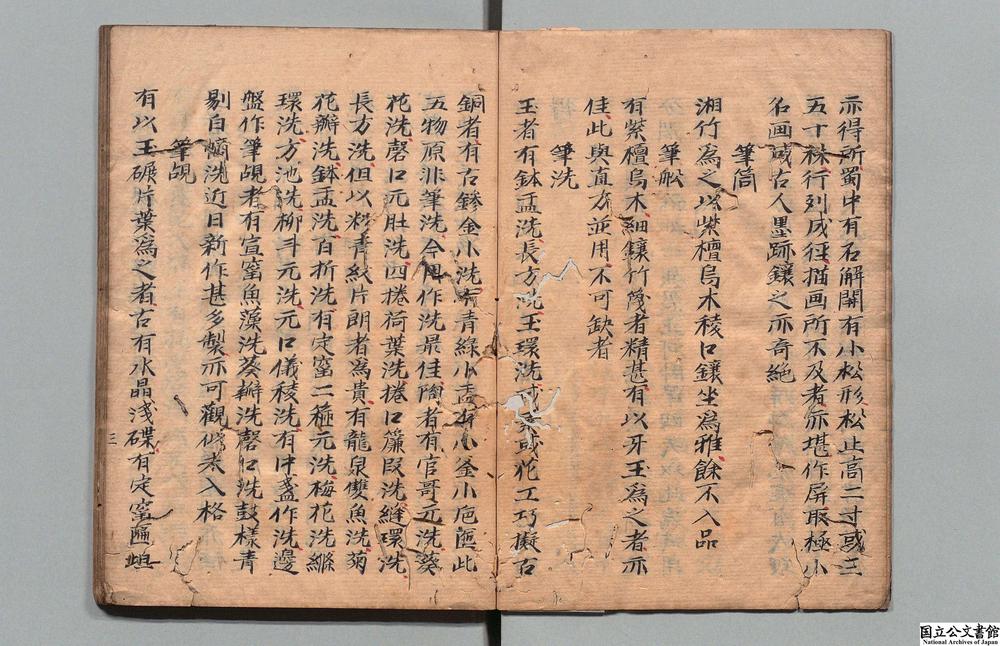 亦得所蜀中有石解開有小松形松止高二寸或三
五十株行列成徑描画所不及者亦堪作屏取極小
名画或古人墨跡鑲之亦奇絶
筆筒
湘竹為之以紫檀烏木稜口鑲坐為雅餘不入品
筆船
有紫檀烏木細鑲竹篾者精甚有以牙玉為之者亦
佳此與直方並用不可缺者
筆洗
玉者有鉢盂洗長方洗玉環洗或素或花工巧擬古
銅者有古鏒金小洗有青緑小盂有小釜小巵匜此
五物原非筆洗今用作洗最佳陶者有官哥元洗葵
花洗磬口元肚洗四捲荷葉洗捲口簾段洗縫環洗
長方洗但以粉青紋片朗者為貴有龍泉雙魚洗菊
花瓣洗鉢盂洗百折洗有定窰三箍元洗梅花洗縧
環洗方池洗柳斗元洗元口儀稜洗有中盞作洗邊
盤作筆覘者有宣窰魚藻洗葵瓣洗磬口洗鼓様青
剔白螭洗近日新作甚多製亦可觀似未入格
筆覘
有以玉碾片葉為之者古有水晶浅碟有定窰匾坦
三
国立公文書館
National Archives of Japan